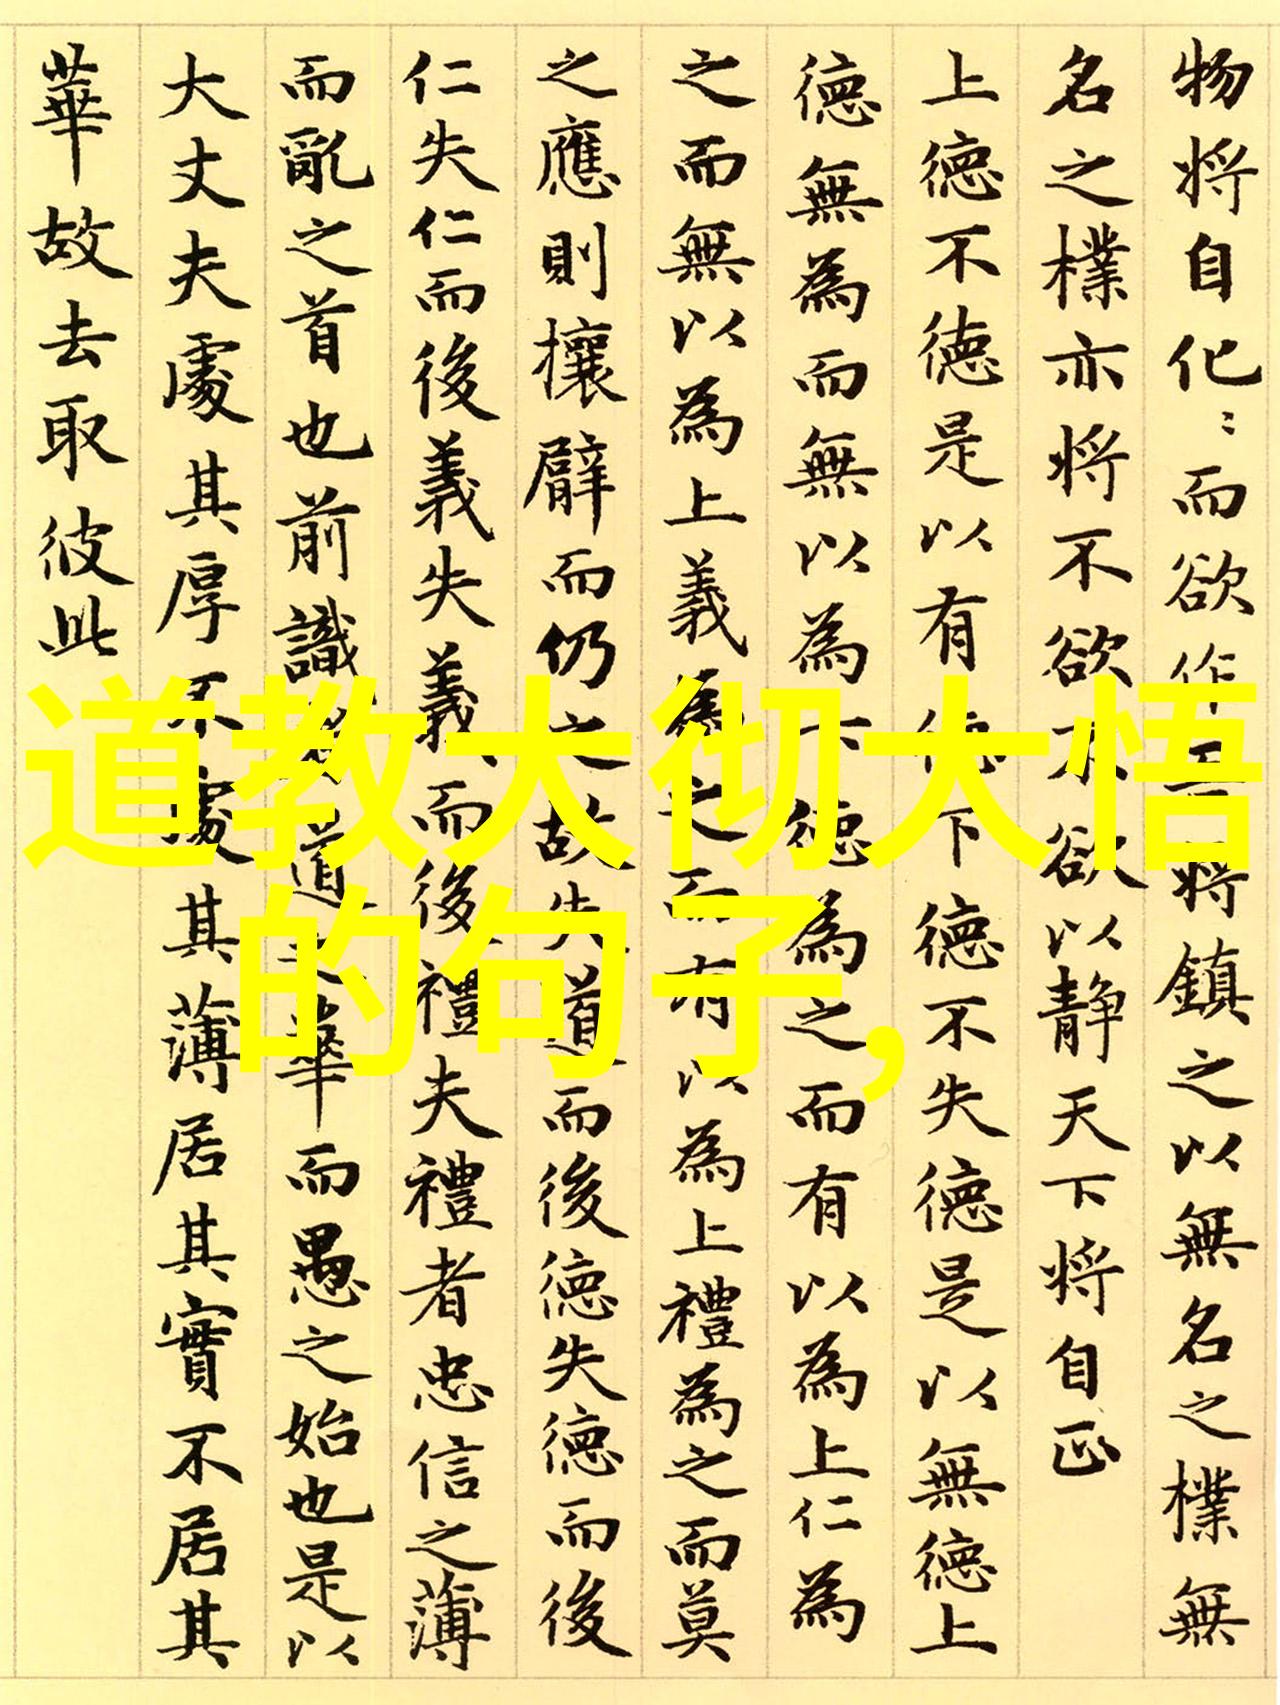 物将自化〻而欲作吾将鎮之以無名之樸無
名之樸亦将不欲不欲以静天下将自正
上徳不徳是以有徳下徳不失徳是以無徳上
徳無為而無以為下徳為之而有以為上仁為
之而無以為上義為之而有以為上禮為之而莫
之應則攘臂而仍之故失道而後徳失徳而後
仁失仁而後義失義而後禮夫禮者忠信之薄
而亂之首也前識者道之華而愚之始也是以
大丈夫處其厚不處其薄居其實不居其
華故去取彼此
道教大彻大悟
的句子,